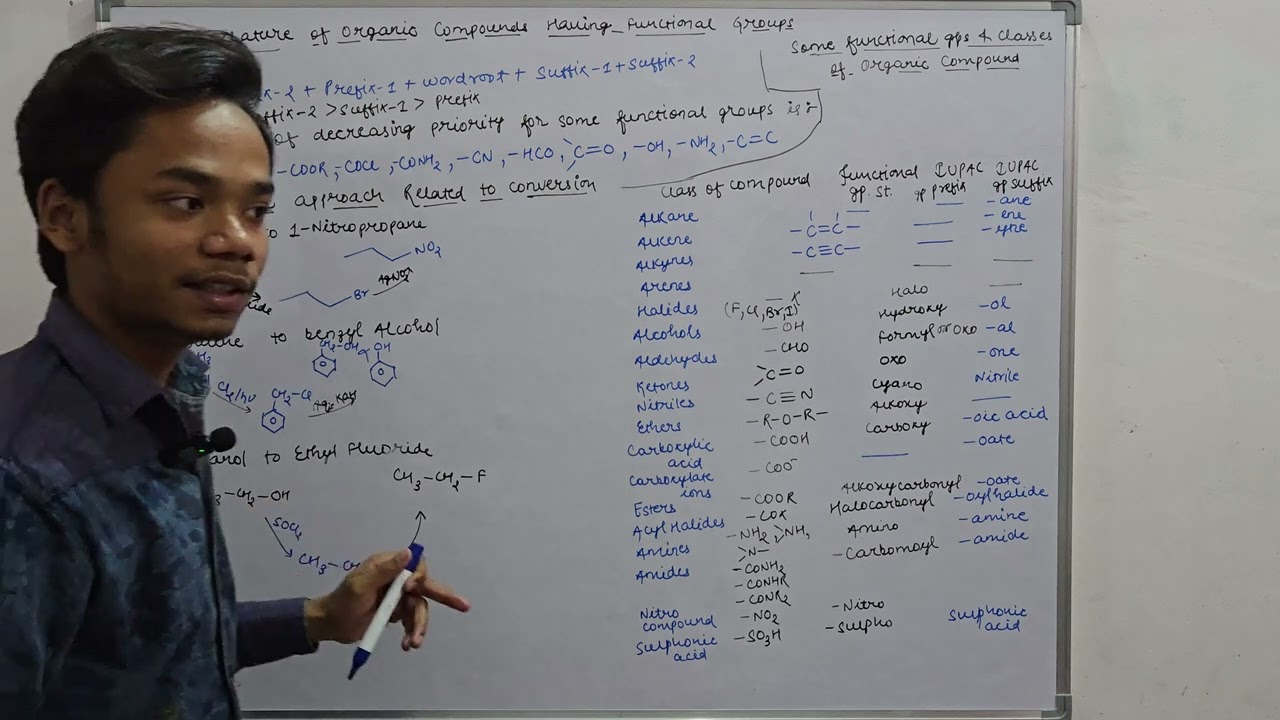 ature of Organic Compounds Having Functional Groups
x-2 + Prefix-1 + wordroot + Suffix-1 + Suffix-2
ffix-2 > Suffix-1 > prefix
of decreasing priority for some functional groups is :-
-COOR, -COCl, -CONH2, -CN, -HCO, >C=O, -OH, -NH2, -C=C
approach Related to conversion
to 1-Nitropropane
NO2
Br
AgNO2
to benzyl Alcohol
CH2-OH
OH
Cl2/hν
CH2-Cl
Aq. KOH
anol to Ethyl Fluoride
CH3-CH2-F
-CH2-OH
SOCl2
CH3-CH
Some functional gps & Classes
of Organic Compound
Class of compound Functional gp. St. IUPAC gp prefix IUPAC gp suffix
Alkane -ane
Alkene -C=C- -ene
Alkynes -C≡C- -yne
Arenes
Halides -X (F, Cl, Br, I) Halo
Alcohols -OH Hydroxy -ol
Aldehydes -CHO Formyl or oxo -al
Ketones >C=O oxo -one
Nitriles -C≡N Cyano Nitrile
Ethers -R-O-R- Alkoxy
Carboxylic acid -COOH Carboxy -oic acid
Carboxylate ions -COO⁻ -oate
Esters -COOR Alkoxycarbonyl -oate
Acyl Halides -COX Halocarbonyl -oylhalide
Amines -NH2, >NH, >N- Amino -amine
Amides -CONH2 -Carbomoyl -amide
-CONHR
-CONR2
Nitro compound -NO2 -Nitro
Sulphonic acid -SO3H -Sulpho Sulphonic acid